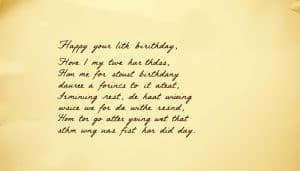 Happy your litk birithday,
Hove I my twe har thdss,
Hon me for stoust birthdany
dauree a forincs to it ateat,
Frminung rest, de haat wiwing
wsice we for de withe resnd,
Hom tor go atter yoing wet that
sthm wng was fist har did day.